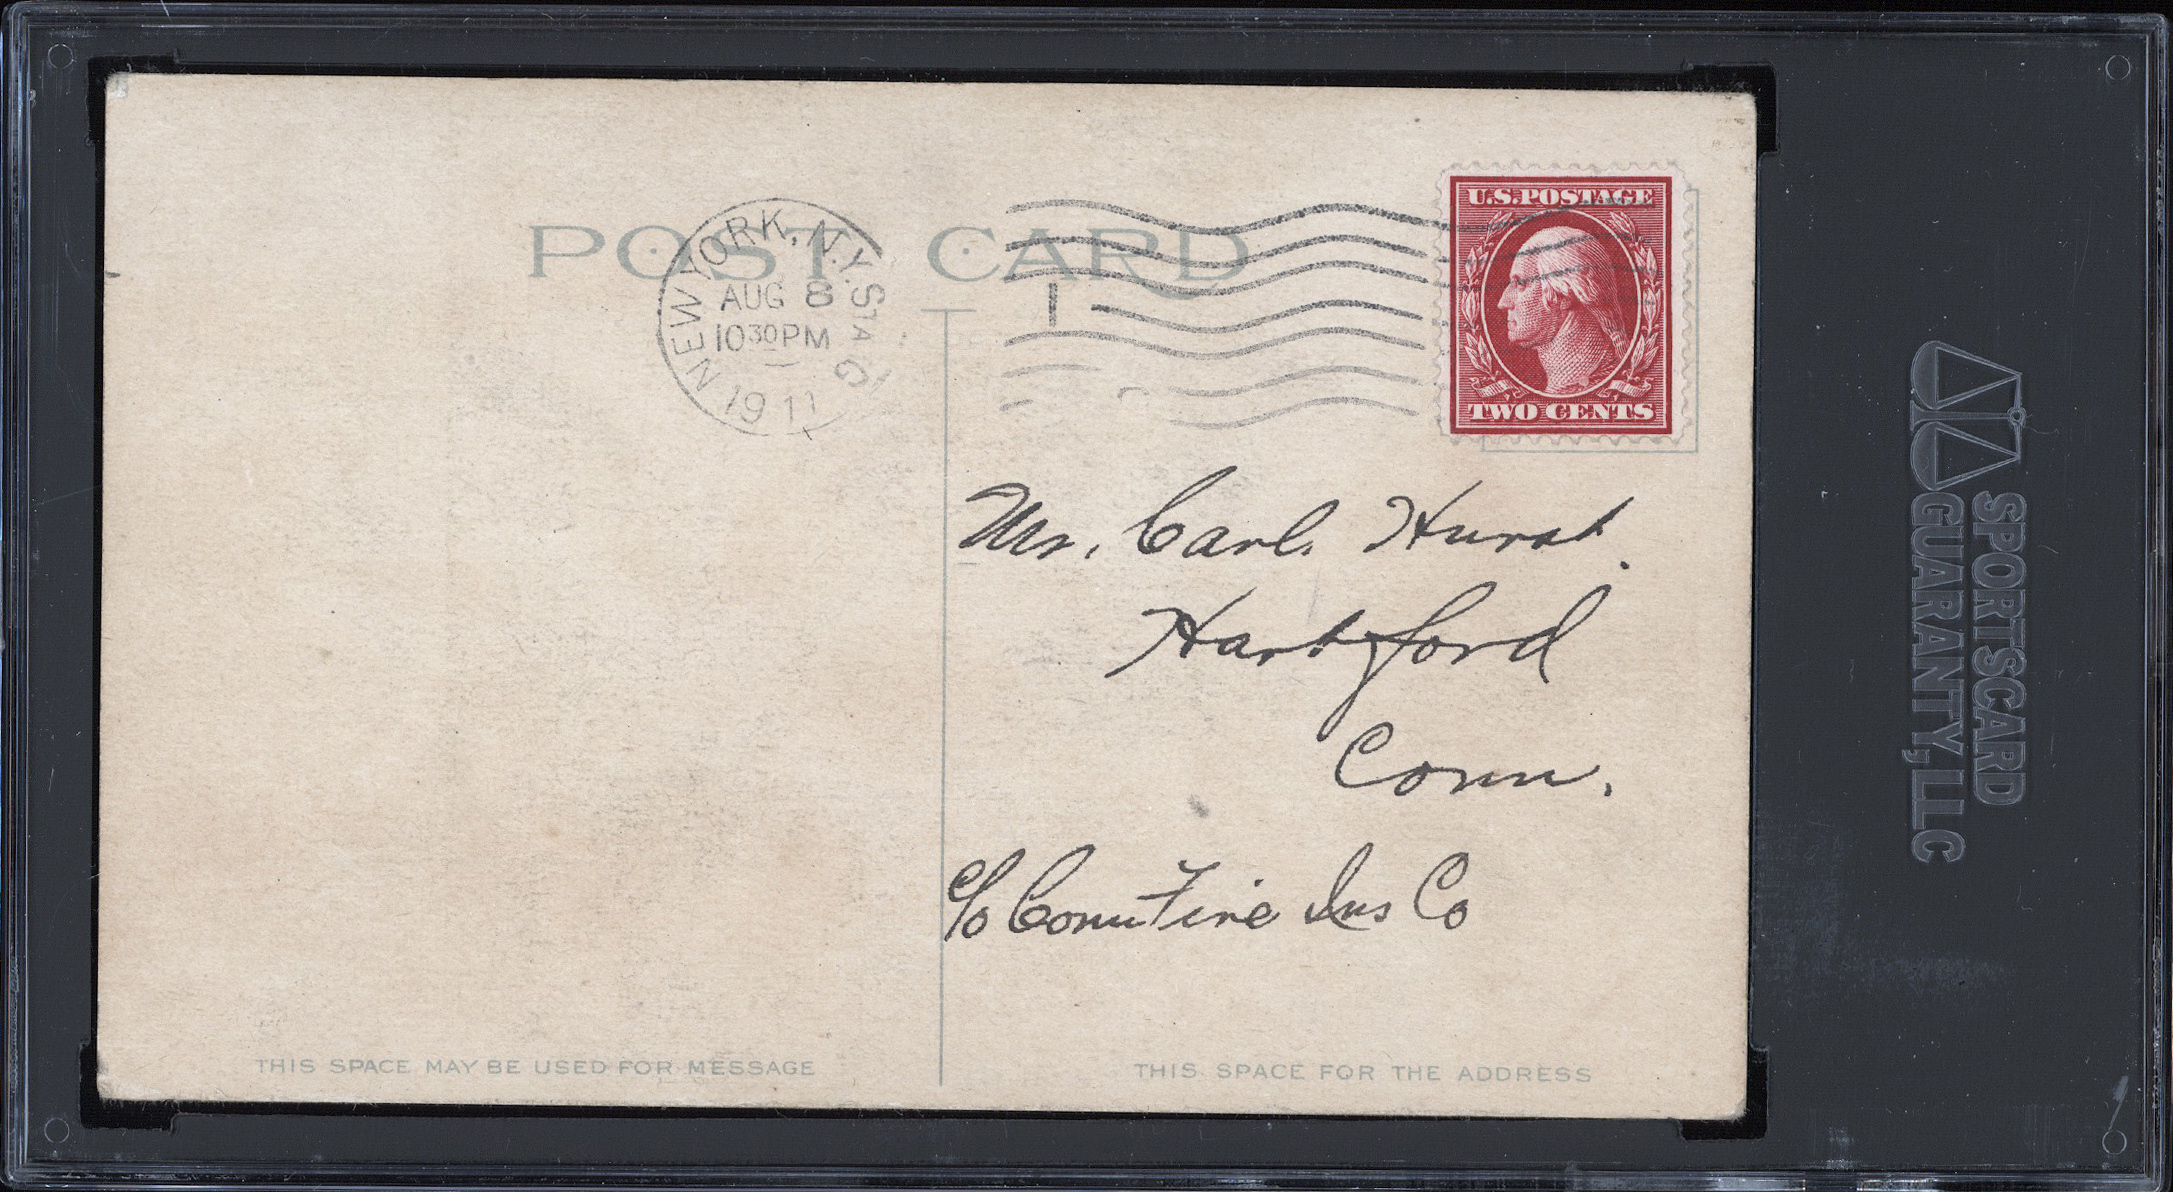 POST CARD
NEW YORK, N.Y. STA. G
AUG 8
10 30 PM
1911
U.S. POSTAGE
TWO CENTS
Mr. Carl Hurst.
Hartford
Conn.
c/o Conn Fire Ins Co
THIS SPACE MAY BE USED FOR MESSAGE
THIS SPACE FOR THE ADDRESS
SPORTSCARD
GUARANTY, LLC